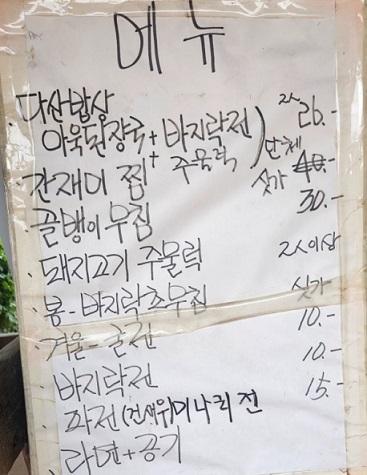 메 뉴
· 다산밥상 2人 26.-
아욱된장국 + 바지락전 ) 단체
+ 주물럭
· 간재미 찜 싯가 40.-
골뱅이 무침 30.-
· 돼지고기 주물럭 2人이상
· 봄-바지락초무침 싯가
· 겨울-굴전 10.-
바지락전 10.-
파전 (건새우) 미나리전 15.-
라면+공기